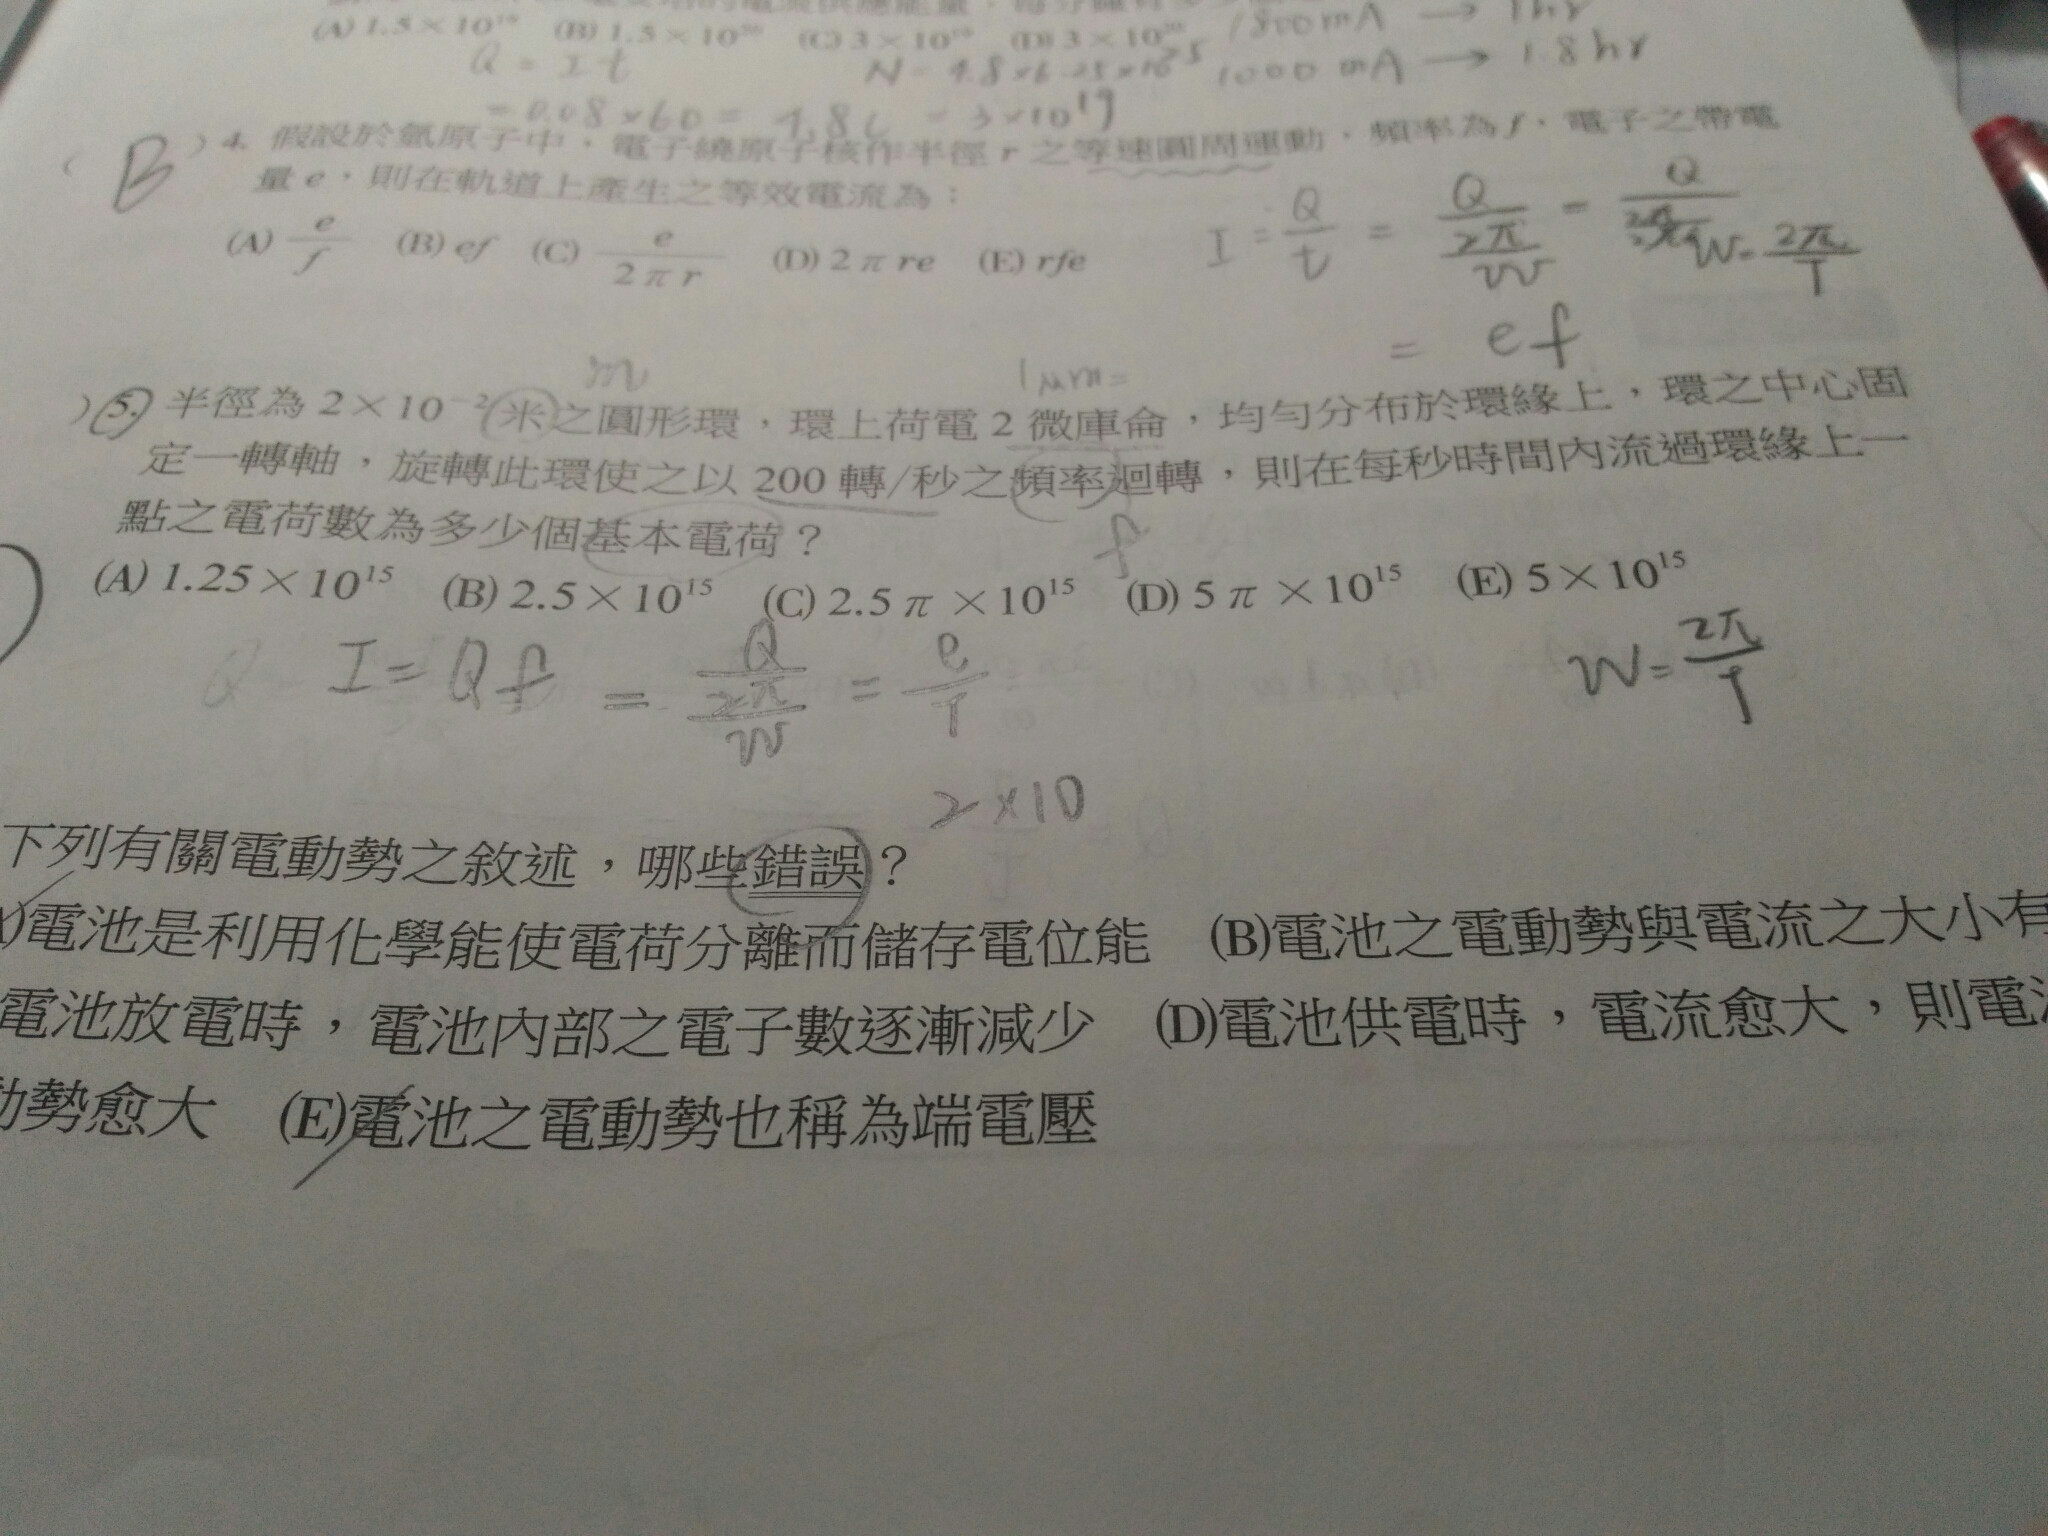 (A) 1.5×10¹⁹ (B) 1.5×10²⁰ (C) 3×10¹⁹ (D) 3×10²⁰ 1800 mA → 1hr
Q = It N = 4.8×6.25×10 1000 mA → 1.8 hr
= 0.08×60 = 4.8C = 3×10¹⁹
( B ) 4. 假設於氫原子中，電子繞原子核作半徑 r 之等速圓周運動，頻率為 f，電子之帶電
量 e，則在軌道上產生之等效電流為：
(A) e/f (B) ef (C) e/2πr (D) 2πre (E) rfe
I = Q/t = Q/(2π/W) = Q W = 2π/T
= ef
m 1μm=
) 5. 半徑為 2×10⁻² 米之圓形環，環上荷電 2 微庫侖，均勻分布於環緣上，環之中心固
定一轉軸，旋轉此環使之以 200 轉/秒之頻率迴轉，則在每秒時間內流過環緣上一
點之電荷數為多少個基本電荷？
f
(A) 1.25×10¹⁵ (B) 2.5×10¹⁵ (C) 2.5π×10¹⁵ (D) 5π×10¹⁵ (E) 5×10¹⁵
I = Qf = Q/(2π/W) = e/T W = 2π/T
2×10
下列有關電動勢之敘述，哪些錯誤？
)電池是利用化學能使電荷分離而儲存電位能 (B)電池之電動勢與電流之大小有
電池放電時，電池內部之電子數逐漸減少 (D)電池供電時，電流愈大，則電
動勢愈大 (E)電池之電動勢也稱為端電壓